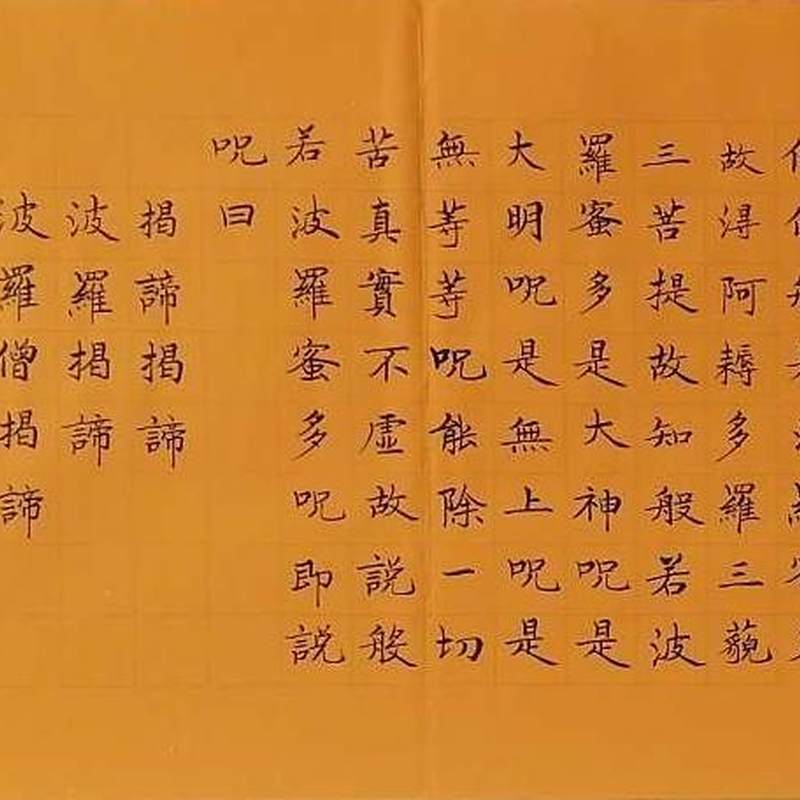 故得阿耨多羅三藐
三苦提故知般若波
羅蜜多是大神呪是
大明呪是無上呪是
無等等呪能除一切
苦真實不虛故說般
若波羅蜜多呪即說
呪曰
揭諦揭諦
波羅揭諦
波羅僧揭諦